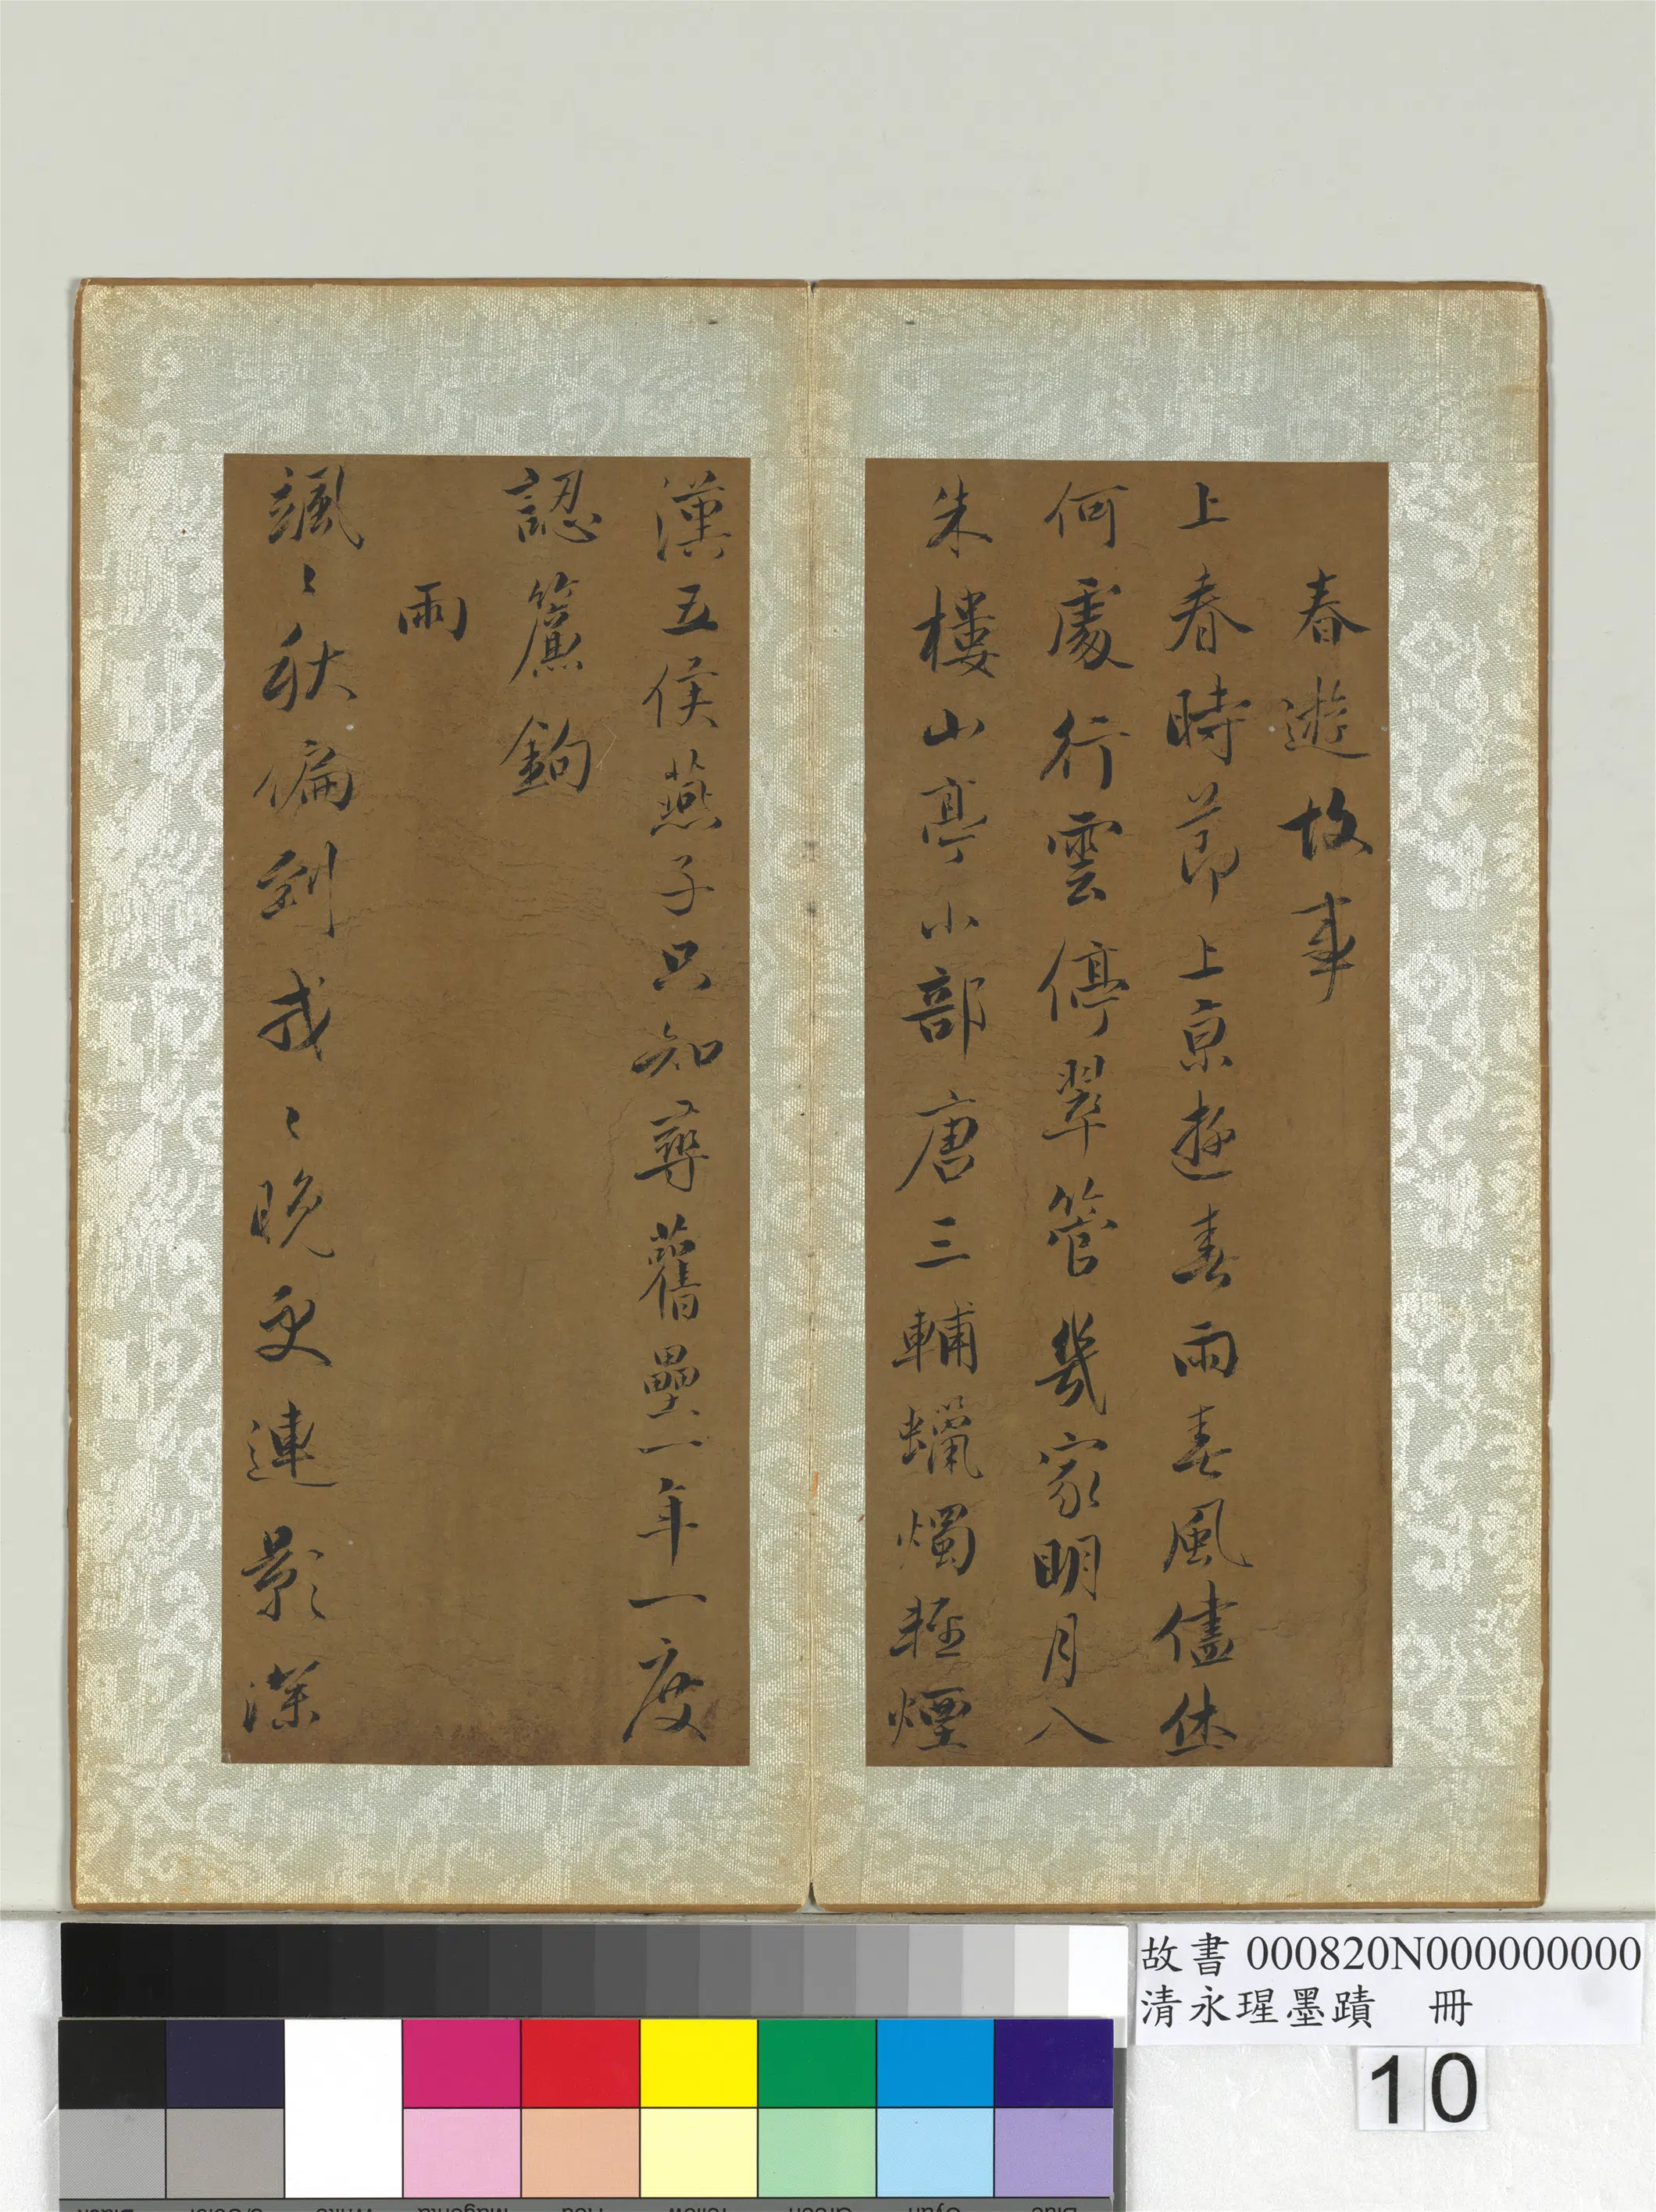 春遊故事
上春時節上京遊春雨春風儘休
何處行雲停翠管幾家明月入
朱樓山亭小部唐三輔蠟燭輕煙
漢五侯燕子只知尋舊壘一年一度
認簾鉤
雨
颯〻秋偏到戎〻晚更連影深
故書 000820N000000000
清永瑆墨蹟 冊
10